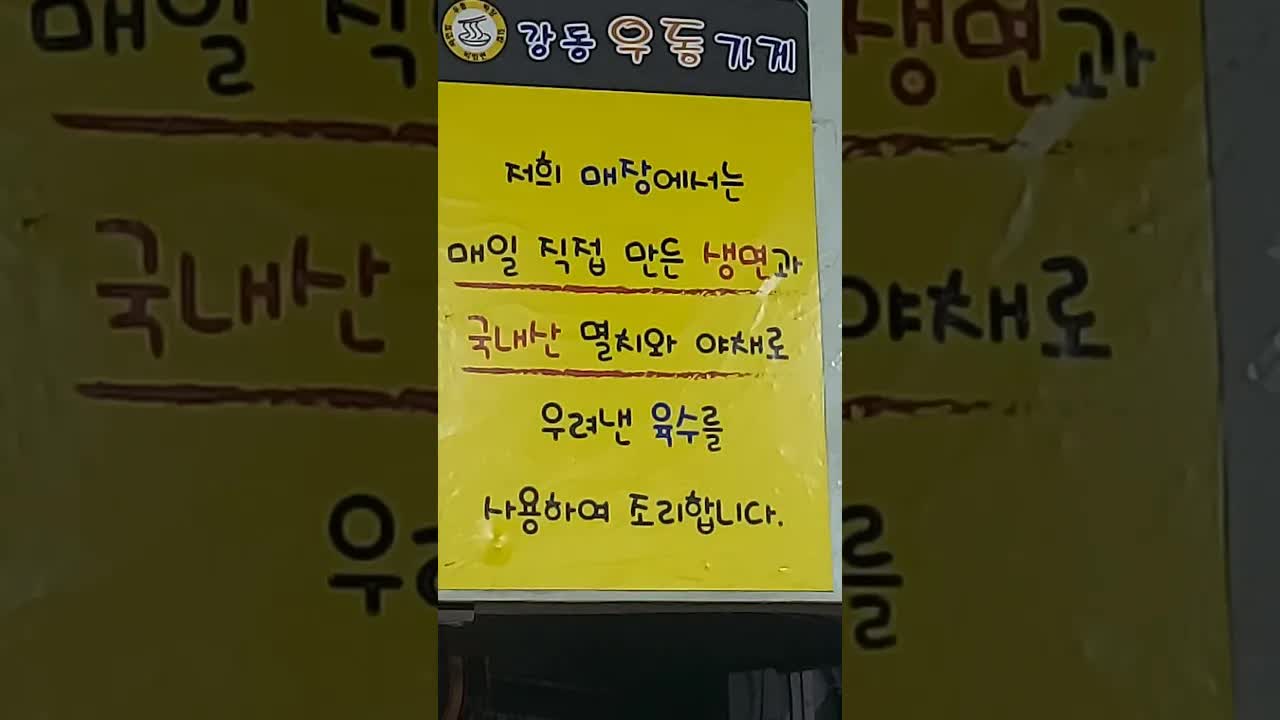 강동 우동 가게
저희 매장에서는
매일 직접 만든 생면과
국내산 멸치와 야채로
우려낸 육수를
사용하여 조리합니다.